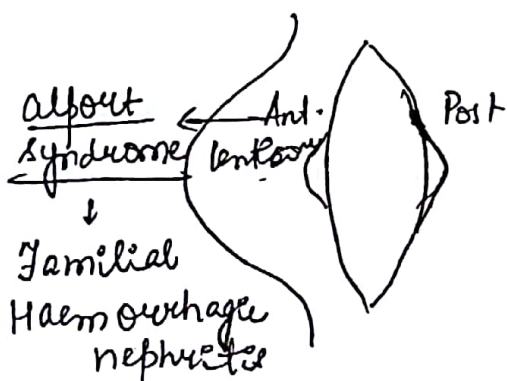 Alport
syndrome
Ant.
lenticonus
Post
↓
Familial
Haemorrhagic
nephritis